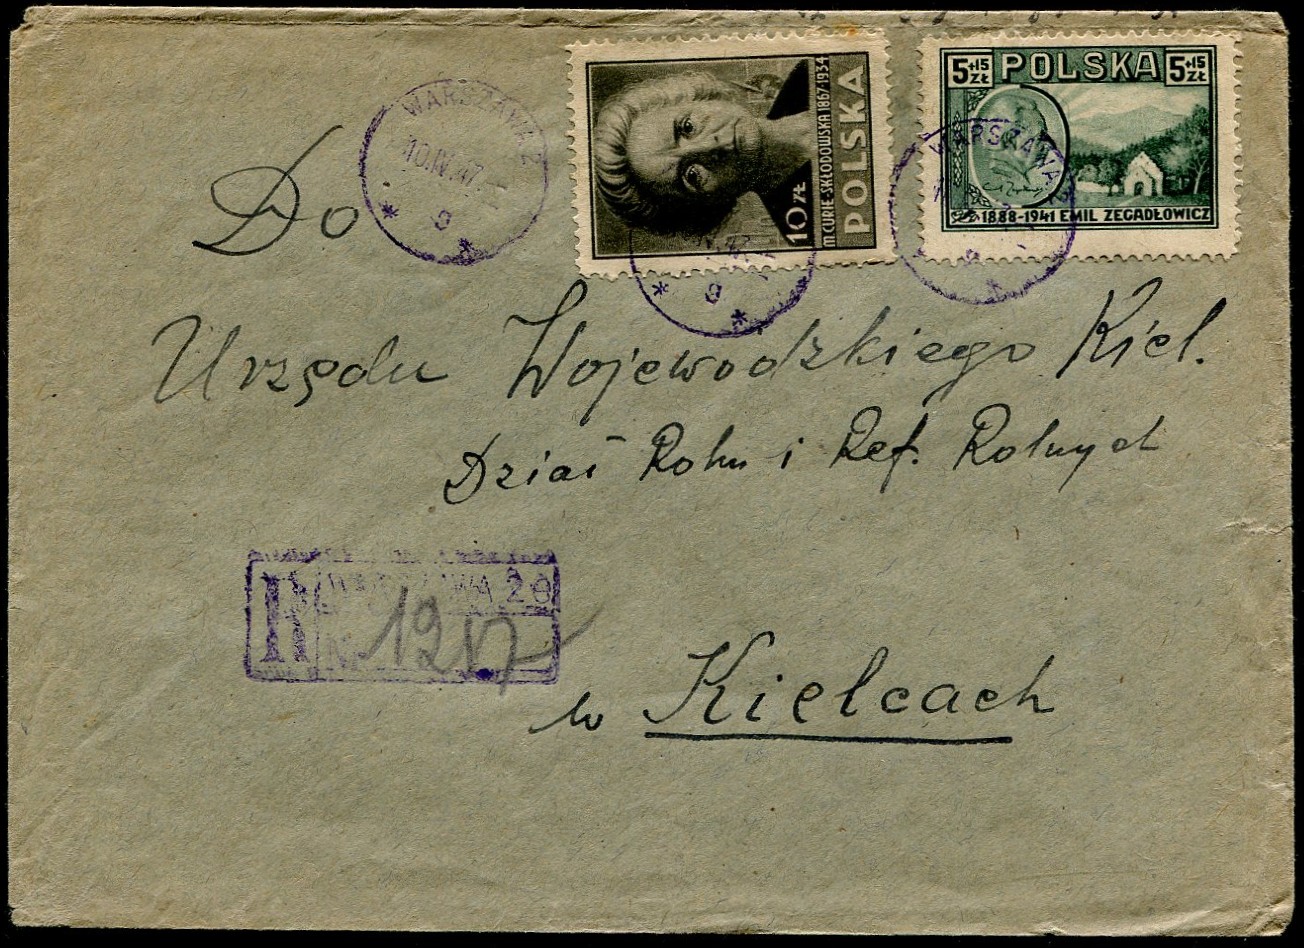 5+15 ZŁ POLSKA 5+15 ZŁ
1888-1941 EMIL ZEGADŁOWICZ
10 ZŁ
M. CURIE-SKŁODOWSKA 1867-1934
POLSKA
WARSZAWA 2
10.IV.47
* 9 *
* 9 *
WARSZAWA 2
Do
Urzędu Wojewódzkiego Kiel.
Dział Rolni i Ref. Rolnych
R WARSZAWA 20
Nr 1217
w Kielcach